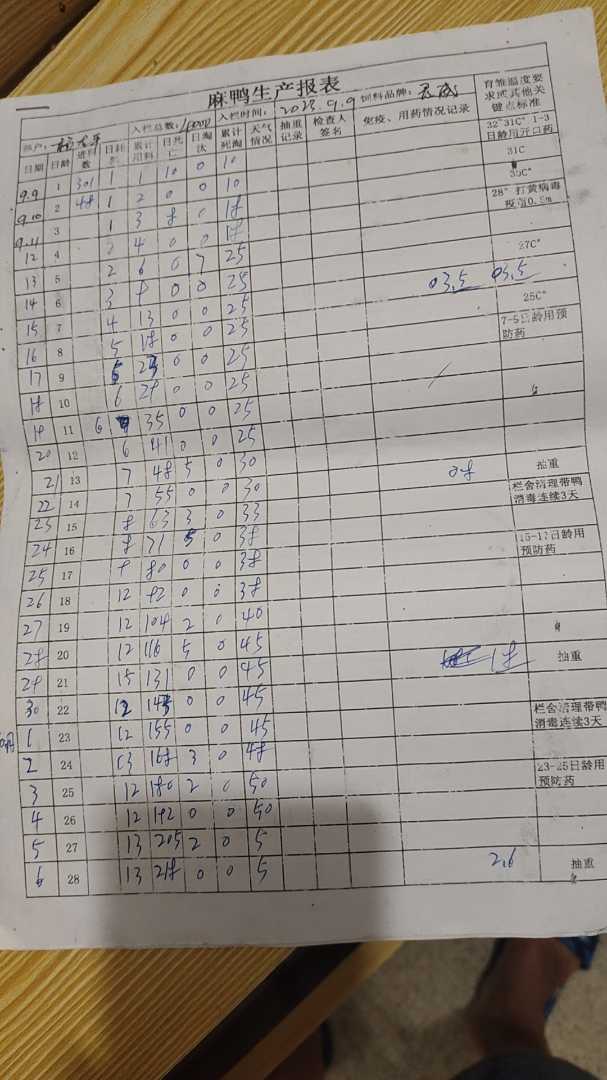 麻鸭生产报表
入栏总数: 入栏时间: 2023.9.9 饲料品牌:
日期 日龄 进料数 日耗料 累计用料 日死亡 日淘汰 累计死淘 天气情况 抽重记录 检查人签名 免疫、用药情况记录 育雏温度要求或其他关键点标准
9.9 1 301 1 1 10 0 10 32~31C° 1-3日龄用开口药
9.10 2 48 1 2 0 0 10 31C
9.11 3 1 3 8 0 18 30C°
12 4 2 4 0 0 18
13 5 2 6 0 7 25 27C°
14 6 3 9 0 0 25 03.5 03.5
15 7 4 13 0 0 25 25C°
16 8 5 18 0 0 25
17 9 5 23 0 0 25
18 10 6 29 0 0 25
19 11 6 35 0 0 25
20 12 6 41 0 0 25
21 13 7 48 5 0 30 08 抽重
22 14 7 55 0 0 30 栏舍清理带鸭消毒连续3天
23 15 8 63 3 0 33
24 16 8 71 5 0 38 15-17日龄用预防药
25 17 9 80 0 0 38
26 18 12 92 0 0 38
27 19 12 104 2 0 40
28 20 12 116 5 0 45
29 21 15 131 0 0 45 18 抽重
30 22 12 143 0 0 45
1 23 12 155 0 0 45 栏舍清理带鸭消毒连续3天
2 24 13 168 3 0 48
3 25 12 180 2 0 50 23-25日龄用预防药
4 26 12 192 0 0 50
5 27 13 205 2 0 5
6 28 13 218 0 0 5 2.6 抽重